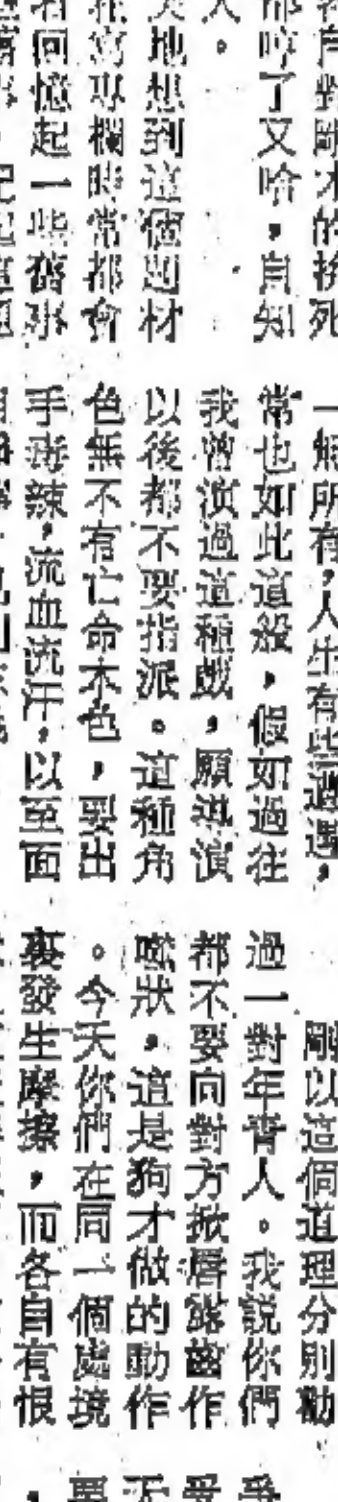 自對剛才的拚死
都哼了又哈，自知
人。
地想到這個題材
在寫專欄時常都會
回憶起一些舊事
一無所有，人生有此遭遇，
常也如此這般，假如過往
我曾演過這種戲，願導演
以後都不要指派。這種角
色無不有亡命本色，要出
手毒辣，流血流汗，以至面
剛以這個道理分別勸
過一對年青人。我說你們
都不要向對方掀唇露齒作
噬狀，這是狗才做的動作
。今天你們在同一個處境
裏發生摩擦，而各自有恨